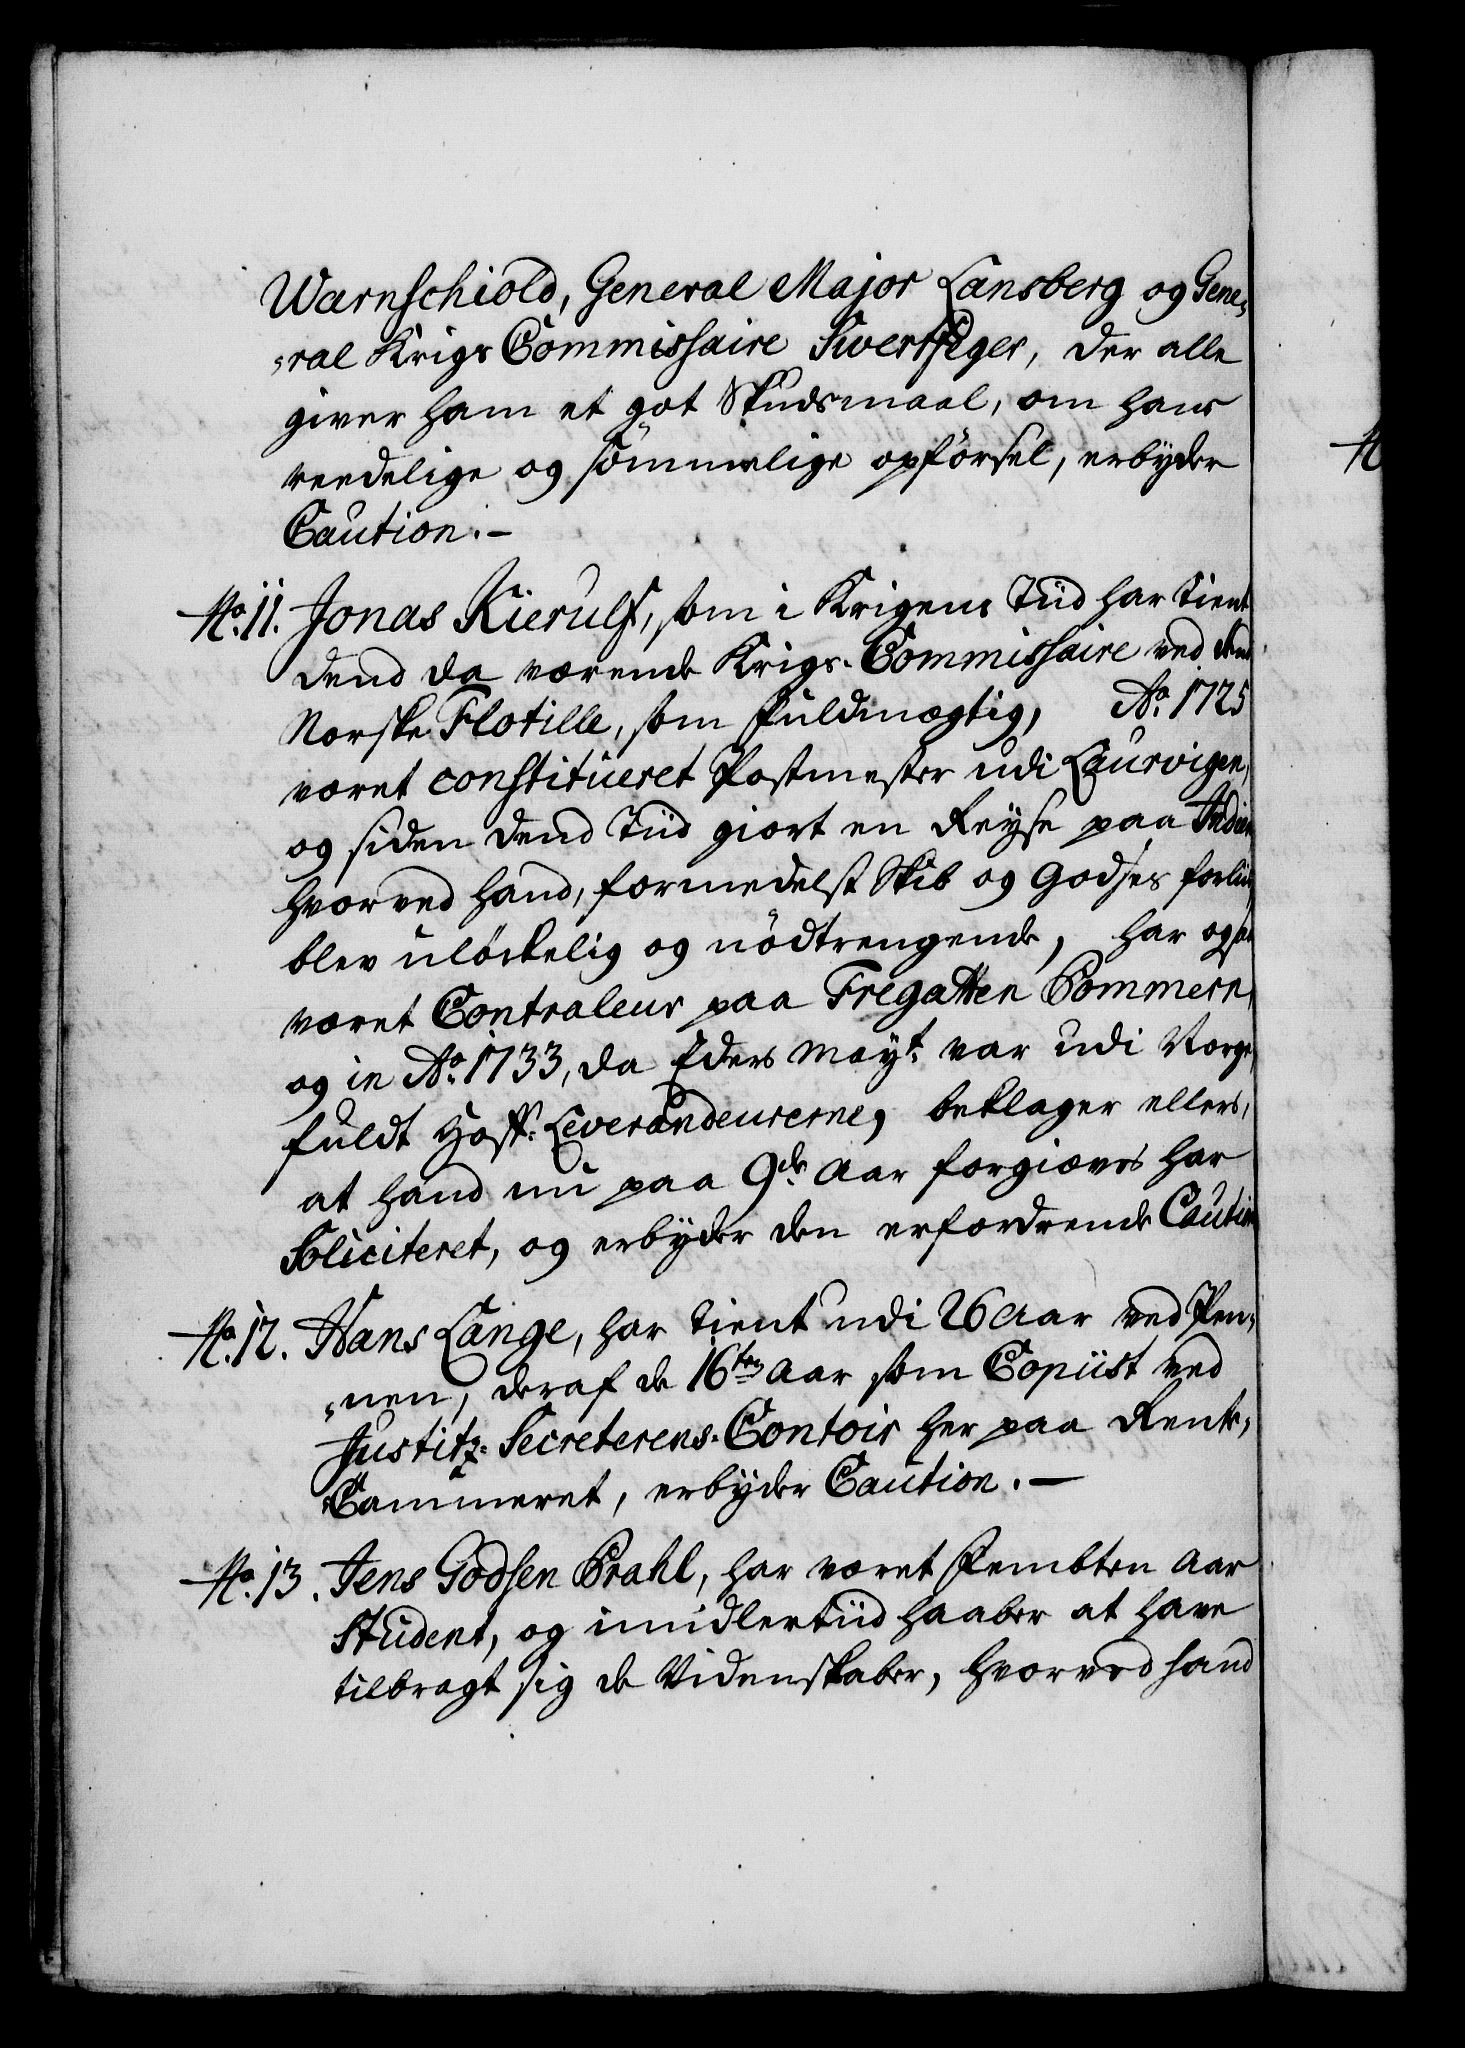 Warnschiold, General Major Lansberg og Gene„
„ral Krigs Commissaire Swertfeger, der alle
giver ham et got Skudsmaal, om hans
reedelige og sömmelige opförsel, erbyder
Caution. –
No. 11. Jonas Kierulf, som i Krigens Tiid har tient
dend da værende Krigs-Commissaire ved dend
Norske Flotille, som Fuldmægtig, Ao. 1725
været constitueret Postmester udi Laurvigen,
og siden dend Tiid giort en Reyse paa Indien
hvorved hand, formedelst Skib og Godses forliis,
blev ulöckelig og nödtrengende, har ogsaa
været Contraleur paa Fregatten Pommern,
og in Ao. 1733, da Eders Mayt. var udi Norge,
fuldt Hoff-Leverandeurerne, beklager ellers,
at hand nu paa 9de Aar forgiæves har
Soliciteret, og erbyder den erfordrende Caution
No. 12. Hans Lange, har tient udi 26 Aar ved Pen„
„nen, deraf de 16ten Aar som Copiist ved
Justitz-Secreterens-Contoir her paa Rente„
Cammeret, erbyder Caution. –
No. 13. Jens Godsen Prahl, har været Fembten Aar
Student, og imidlertiid haaber at have
tilbragt sig de Videnskaber, hvorved hand